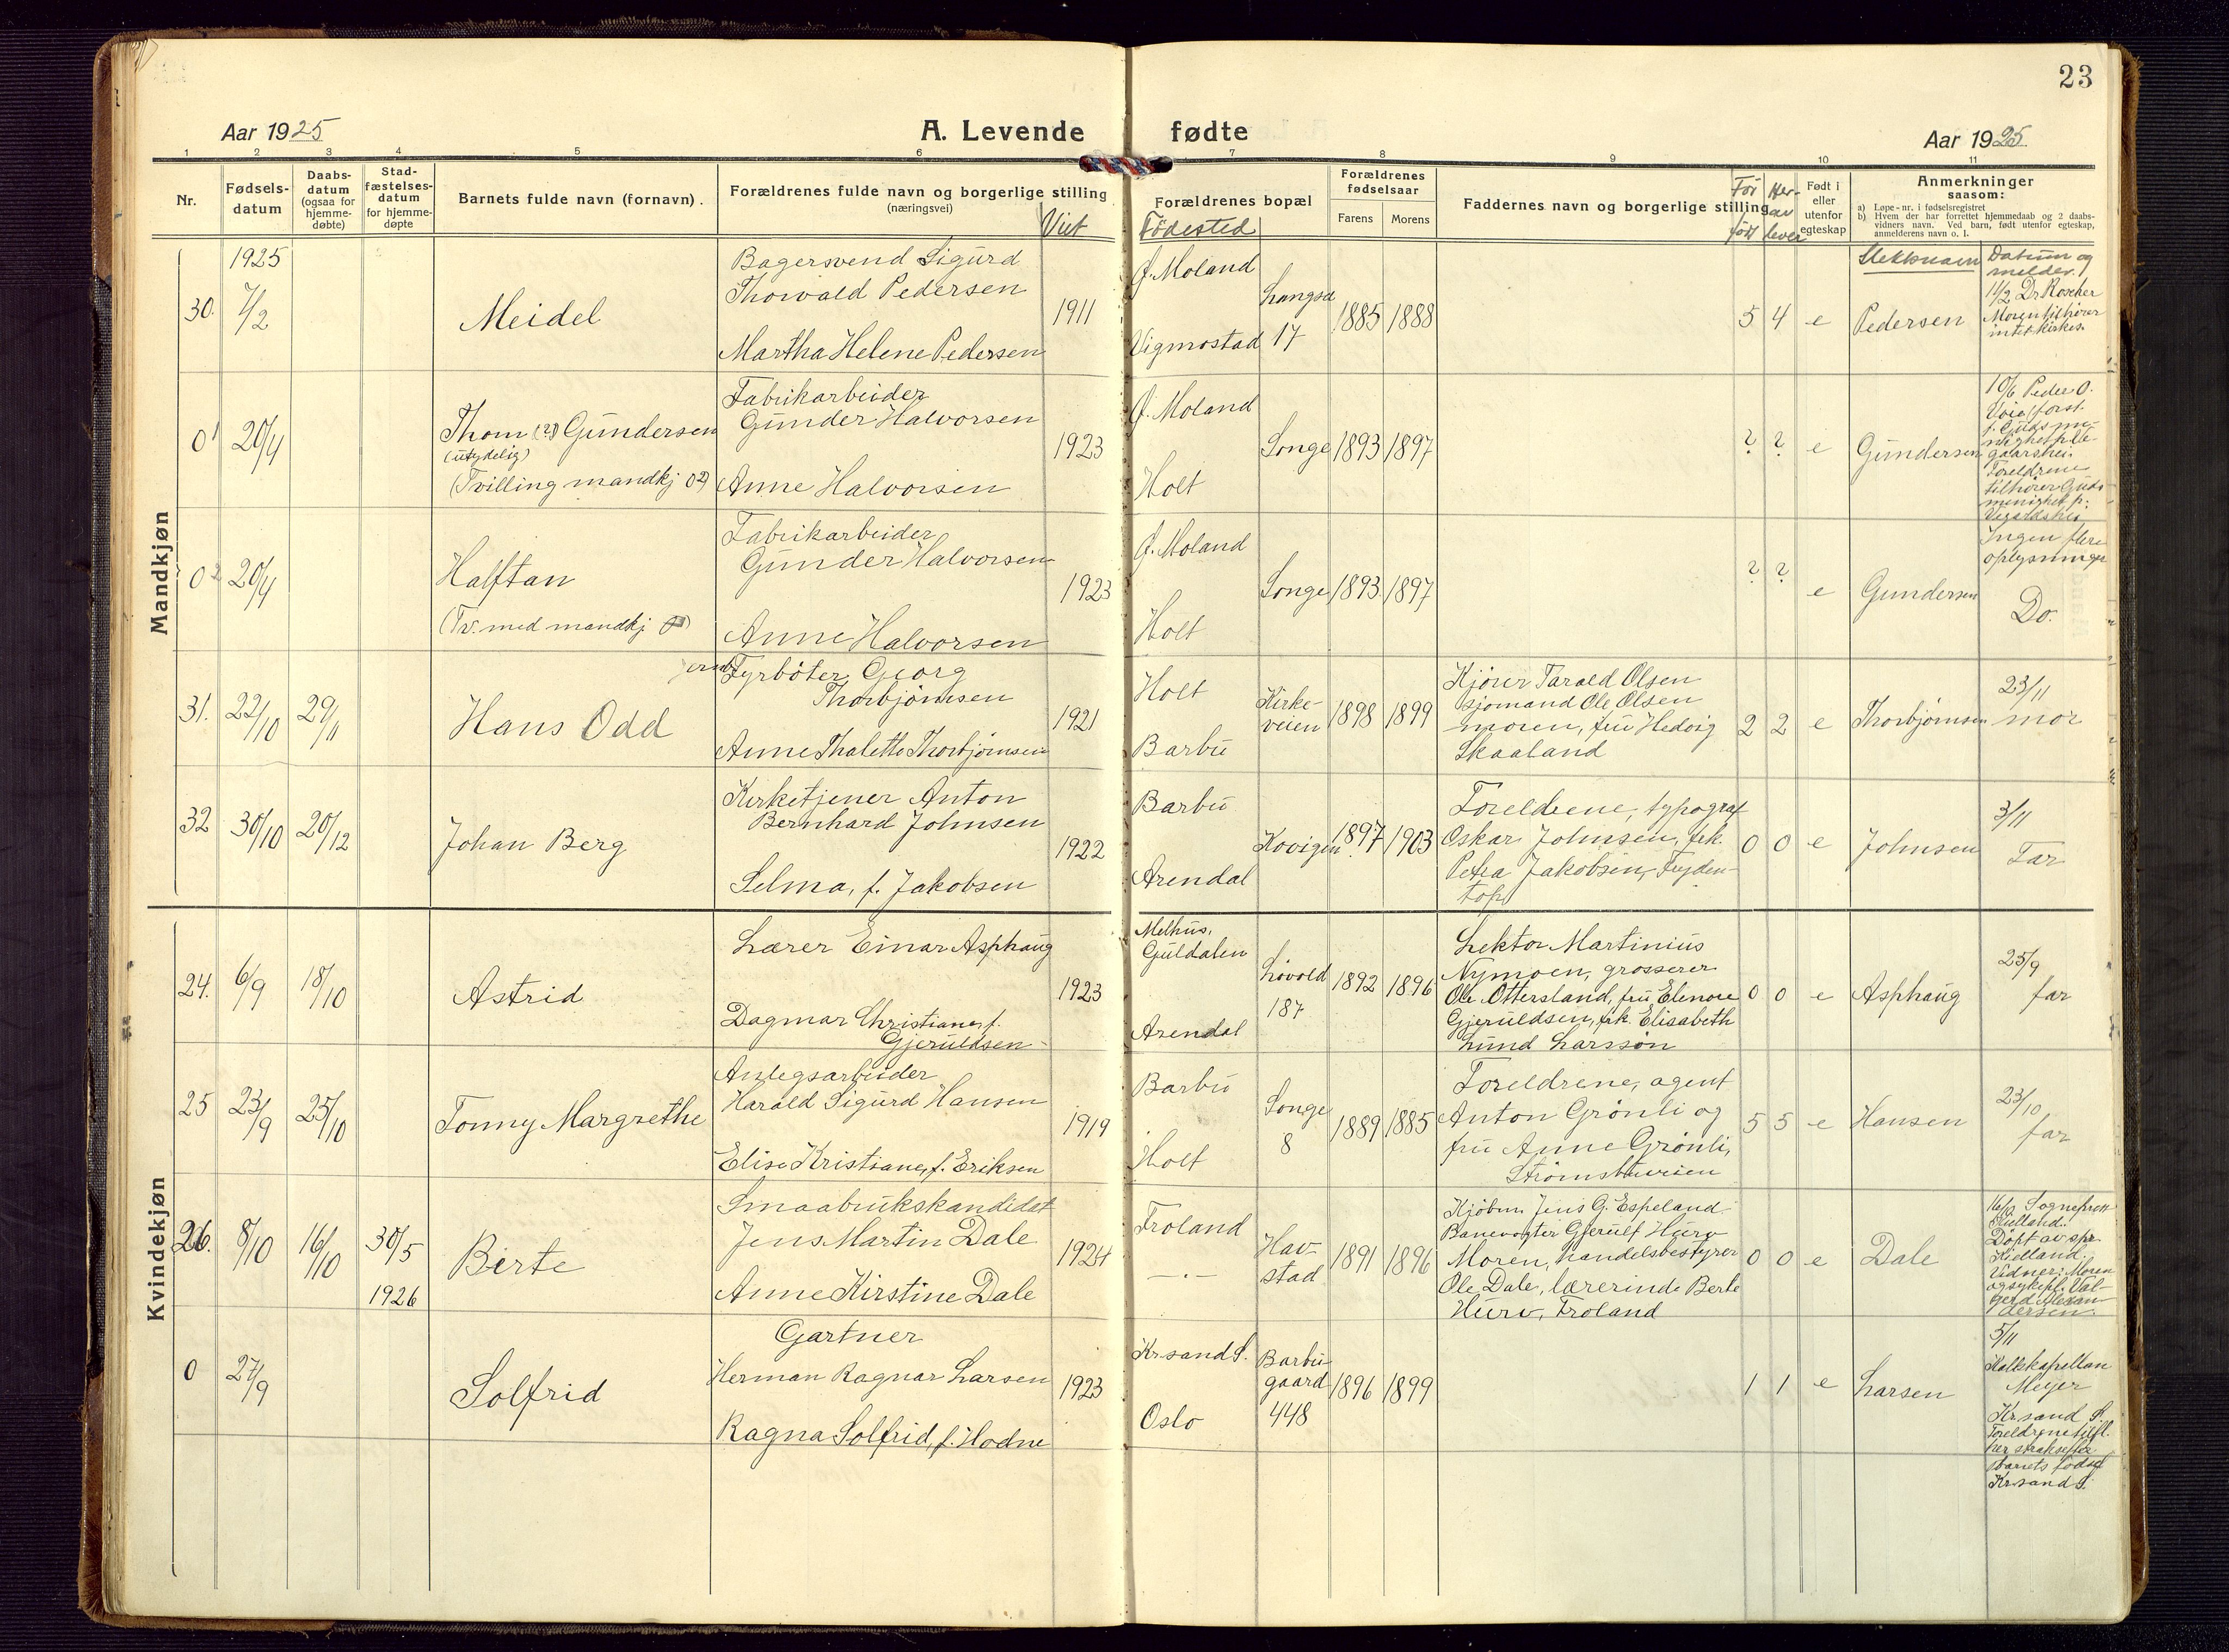 23
Aar 1925
A. Levende fødte
Aar 1925
1 2 3 4 5 6 7 8 9 10 11
Nr.
Fødsels-
datum
Daabs-
datum
(ogsaa for
hjemme-
døbte)
Stad-
fæstelses-
datum
for hjemme-
døpte
Barnets fulde navn (fornavn).
Forældrenes fulde navn og borgerlige stilling
(næringsvei)
Viet
Forældrenes bopæl
Födested
Forældrenes
fødselsaar
Farens
Morens
Faddernes navn og borgerlige stilling
Før
født
Her-
av
lever
Født i
eller
utenfor
egteskap
Anmerkninger
saasom:
a) Løpe-nr. i fødselsregistret
b) Hvem der har forrettet hjemmedaab og 2 daabs-
vidners navn. Ved barn, født utenfor egteskap,
anmelderens navn o. l.
Slektsnavn
Datum og
melder
Mandkjøn
1925
30.
7/2
Meidel
Bagersvend Sigurd
Thorvald Pedersen
Martha Helene Pedersen
1911
Ø. Moland
Vigmostad
Langsæ
17
1885
1888
5
4
e
Pedersen
11/2 Dr Roscher
Moren tilhører
intet kirkes.
0¹
20/4
Thom (?) Gundersen
(utydelig)
(Tvilling mandkj 0²)
Fabrikarbeider
Gunder Halvorsen
Anne Halvorsen
1923
Ø. Moland
Holt
Songe
1893
1897
?
?
e
Gundersen
10/6 Peder O.
forst.
f. Guds me-
nighet
Foreldrene
tilhører Guds
menighet p.
Vegardshei
0²
20/4
Halftan
(Tv. med mandkj 0¹)
Fabrikarbeider
Gunder Halvorsen
Anne Halvorsen
1923
Ø. Moland
Holt
Songe
1893
1897
?
?
e
Gundersen
Ingen flere
oplysninger
Do.
31.
22/10
29/11
Hans Odd
Fyrbøter Georg
Thorbjørnsen
Anne Thalette Thorbjørnsen
1921
Holt
Barbu
Kirke-
veien
1898
1899
Kjører Tarald Olsen
sjømand Ole Olsen
moren, fru Hedvig
Skaaland
2
2
e
Thorbjørnsen
23/11
mor
32
30/10
20/12
Johan Berg
Kirketjener Anton
Bernhard Johnsen
Selma, f. Jakobsen
1922
Barbu
Arendal
Kovigen
1897
1903
Foreldrene, typograf
Oskar Johnsen, frk.
Petra Jakobsen, Fryden-
top
0
0
e
Johnsen
3/11
Far
Kvindekjøn
24.
6/9
18/10
Astrid
Lærer Einar Asphaug
Dagmar Christiane, f.
Gjeruldsen
1923
Melhus,
Guldalen
Arendal
Løvold
187
1892
1896
Lektor Martinius
Nymoen, grosserer
Ole Ottersland, fru Elenore
Gjeruldsen, frk. Elisabeth
Lund Larsson
0
0
e
Asphaug
25/9
far
25
23/9
25/10
Tonny Margrethe
Anlegsarbeider
Harald Sigurd Hansen
Elise Kristiane, f. Eriksen
1919
Barbu
Holt
Songe
8
1889
1885
Foreldrene, agent
Anton Grønli og
fru Anne Grønli,
Strømsbuveien
5
5
e
Hansen
23/10
far
26.
8/10
16/10
30/5
1926
Birte
Smaabrukskandidat
Jens Martin Dale
Anne Kirstine Dale
1924
Froland
— " —
Hav-
stad
1891
1896
Kjøbm. Jens G. Espeland
Banevogter Gjerulf Hurv
Moren, handelsbestyrer
Ole Dale, lærerinde Berte
Hurv, Froland
0
0
e
Dale
16/10 Sogneprest
Kielland.
Døpt av spr.
Kielland.
Vidner: Moren
og sykepl. Val-
gerd Alexan-
dersen.
0
27/9
Solfrid
Gartner
Herman Ragnar Larsen
Ragna Solfrid, f. Hodne
1923
Kr.sand S.
Oslo
Barbu-
gaard
448
1896
1899
1
1
e
Larsen
5/11
Kallskapellan
Meyer
Kr.sand S.
Foreldrene tilfl.
her straks efter
Barnets fødsel
Kr.sand S.